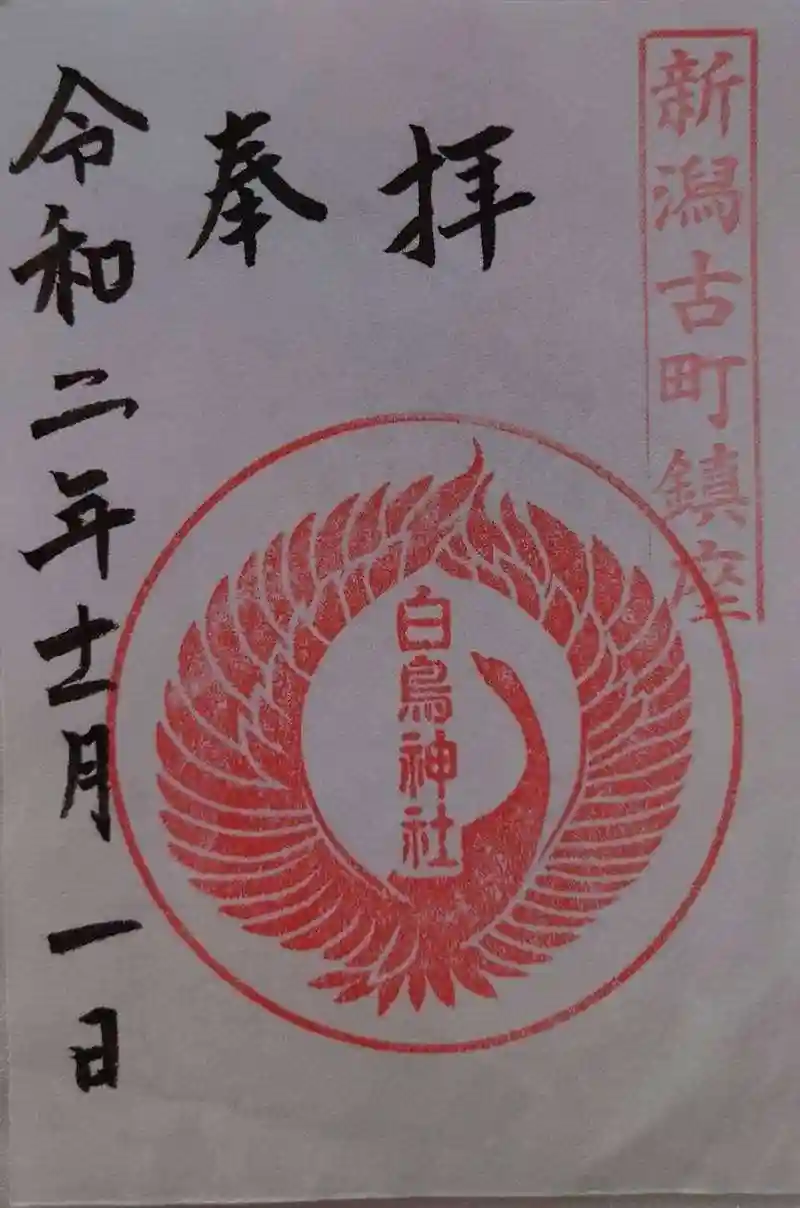 新潟古町鎮座
奉拝
白鳥神社
令和二年十一月一日